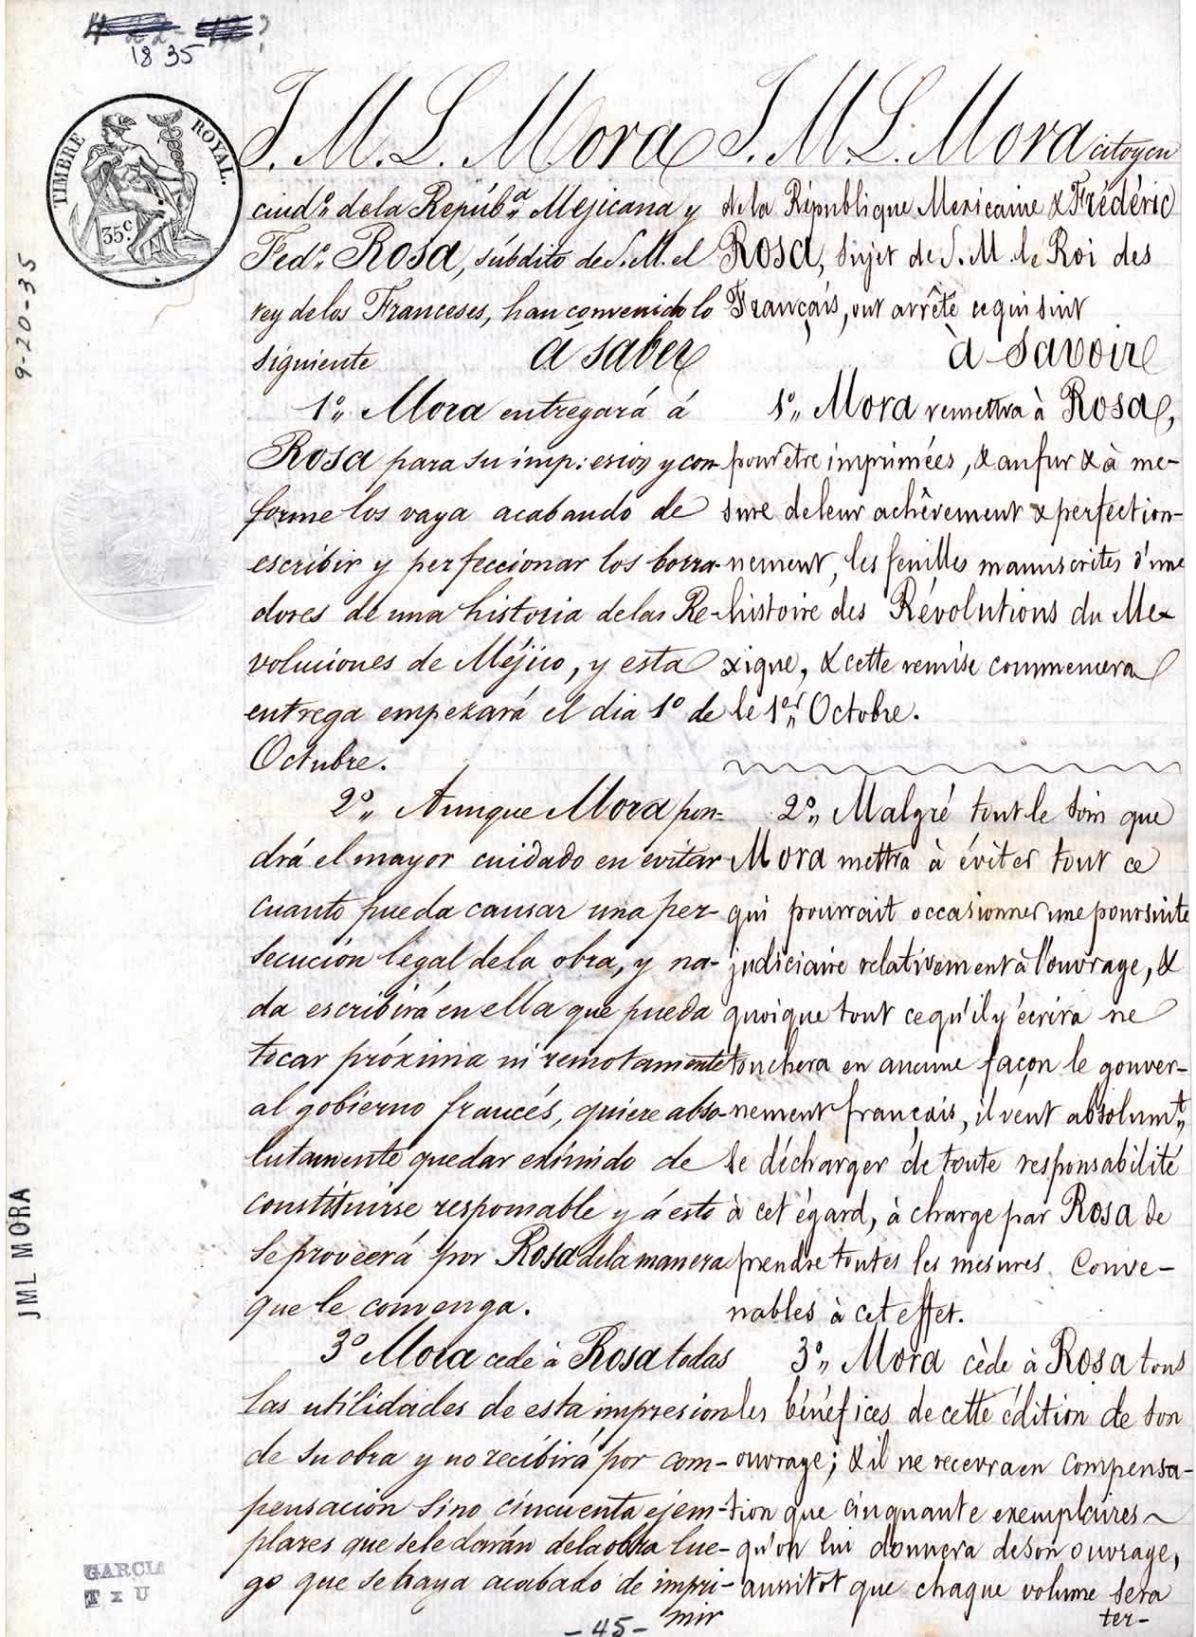 1835
TIMBRE ROYAL.
35c.
9-20-35
JML MORA
GARCIA
J. M. L. Mora
ciudº. dela Repúbª. Mejicana y
Fedº. Rosa, súbdito de S. M. el
rey delos Franceses, han convenido lo
siguiente á saber
1º,, Mora entregará á
Rosa para su impresion y con-
forme los vaya acabando de
escribir y perfeccionar los borra-
dores de una historia delas Re-
voluciones de Méjico, y esta
entrega empezará el dia 1º de
Octubre.
2º,, Aunque Mora pon-
drá el mayor cuidado en evitar
cuanto pueda causar una per-
secución legal dela obra, y na-
da escribirá en ella que pueda
tocar próxima ni remotamente
al gobierno francés, quiere abso-
lutamente quedar eximido de
constituirse responsable y á esto
se proveerá por Rosa dela manera
que le convenga.
3º Mora cede à Rosa todas
las utilidades de esta impresion
de su obra y no recibirá por com-
pensación sino cincuenta ejem-
plares que sele darán dela obra lue-
go que se haya acabado de impri-
mir
J. M. L. Mora citoyen
dela République Mexicaine & Frédéric
Rosa, sujet de S. M. le Roi des
Français, ont arrêté ce qui suit
à savoir
1º,, Mora remettra à Rosa,
pour être imprimées, & au fur & à me-
sure de leur achêvement & perfection-
nement, les feuilles manuscrites d'une
histoire des Révolutions du Me-
xique, & cette remise commencera
le 1er,, Octobre.
2º,, Malgré tout le soin que
Mora mettra à éviter tout ce
qui pourrait occasionner une poursuite
judiciaire relativement à l'ouvrage, &
quoique tout ce qu'il y écrira ne
touchera en aucune façon le gouver-
nement français, il veut absolumt,,
se décharger de toute responsabilité
à cet égard, à charge par Rosa de
prendre toutes les mesures conve-
nables à cet effet.
3º,, Mora cède à Rosa tous
les bénéfices de cette édition de son
ouvrage; & il ne recevra en compensa-
tion que cinquante exemplaires
qu'on lui donnera de son ouvrage,
aussitot que chaque volume sera
ter-
- 45 -